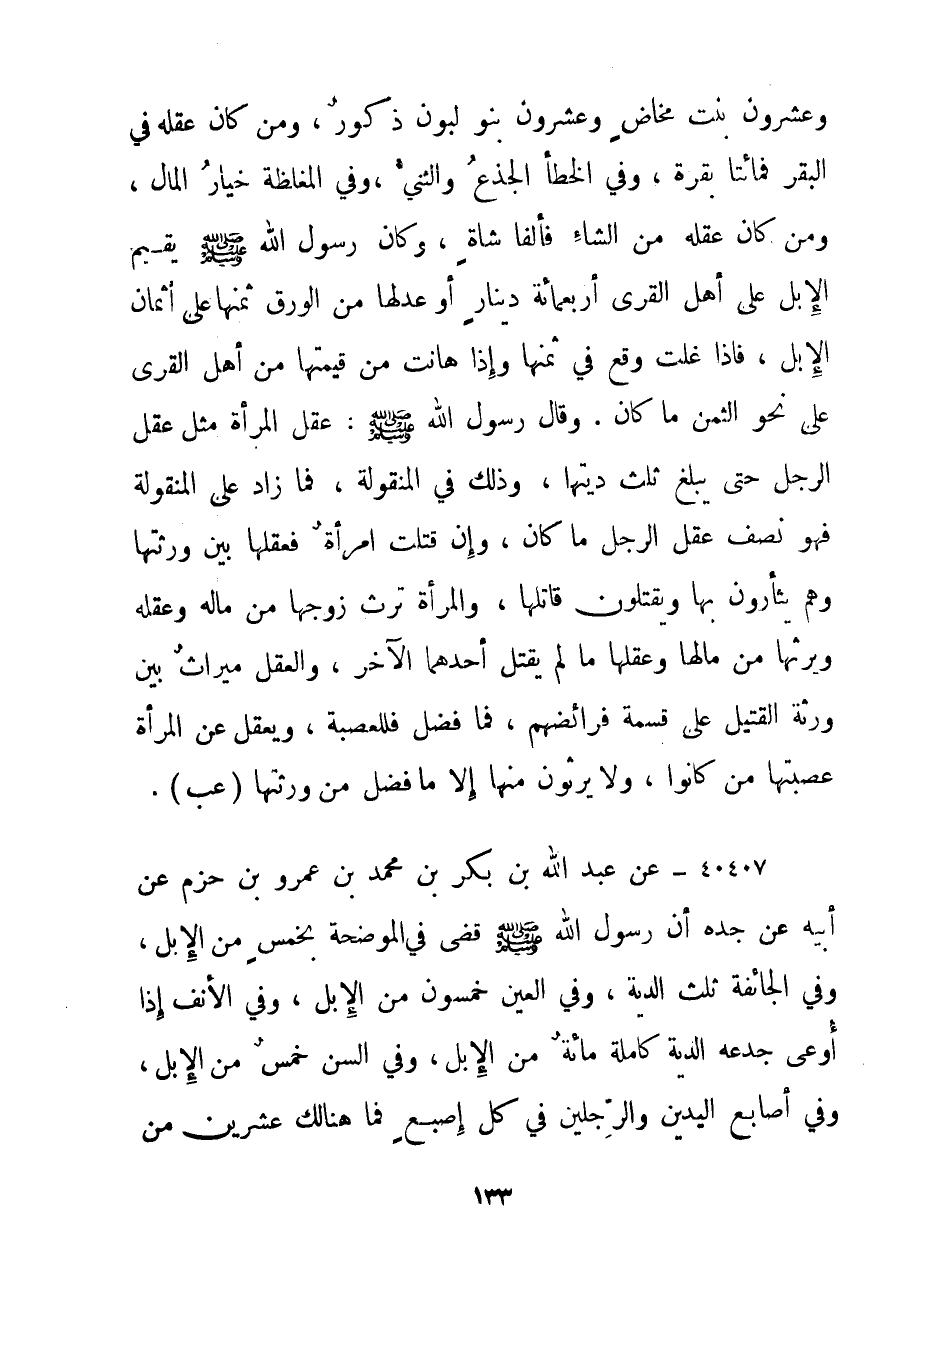 وعشرون بنت مخاضٍ وعشرون بنو لبون ذكورٌ ، ومن كان عقله في
البقر فمائتا بقرة ، وفي الخطأ الجذعُ والثنيُّ ،وفي المغلظة خيارُ المال ،
ومن كان عقله من الشاء فألفا شاةٍ ، وكان رسول الله ﷺ يقيم
الإبل على أهل القرى أربعمائة دينارٍ أو عدلها من الورق ثمنها على أثمان
الإبل ، فاذا غلت وقع في ثمنها وإذا هانت من قيمتها من أهل القرى
على نحو الثمن ما كان . وقال رسول الله ﷺ : عقل المرأة مثل عقل
الرجل حتى يبلغ ثلث ديتها ، وذلك في المنقولة ، فما زاد على المنقولة
فهو نصف عقل الرجل ما كان ، وإن قتلت امرأةٌ فعقلها بين ورثتها
وهم يثأرون بها ويقتلون قاتلها ، والمرأة ترث زوجها من ماله وعقله
ويرثها من مالها وعقلها ما لم يقتل أحدهما الآخر ، والعقل ميراثٌ بين
ورثة القتيل على قسمة فرائضهم ، فما فضل فللعصبة ، ويعقل عن المرأة
عصبتها من كانوا ، ولا يرثون منها إلا ما فضل من ورثتها ( عب ) .
٤٠٤٠٧ - عن عبد الله بن بكر بن محمد بن عمرو بن حزم عن
أبيه عن جده أن رسول الله ﷺ قضى في الموضحة بخمسٍ من الإبل ،
وفي الجائفة ثلث الدية ، وفي العين خمسون من الإبل ، وفي الأنف إذا
أُوعى جدعه الدية كاملة مائةٌ من الإبل ، وفي السن خمسٌ من الإبل ،
وفي أصابع اليدين والرِّجلين في كل إصبعٍ فما هنالك عشرين من
١٣٣